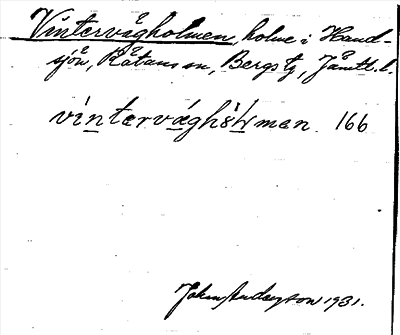 Vintervågholmen, holme i Hand-
sjön, Råtans sn, Bergs tg, Jämtl. l.
vintervæghɷlmen 166
Johan Anderson 1931.